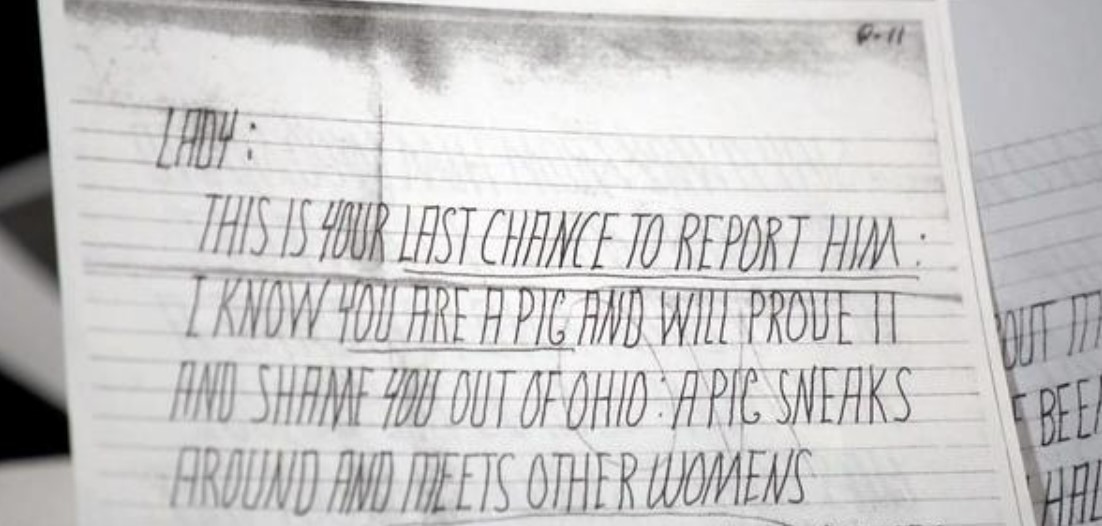 LADY:
THIS IS YOUR LAST CHANCE TO REPORT HIM:
I KNOW YOU ARE A PIG AND WILL PROVE IT
AND SHAME YOU OUT OF OHIO: A PIG SNEAKS
AROUND AND MEETS OTHER WOMENS
OUT
BEE
HAL